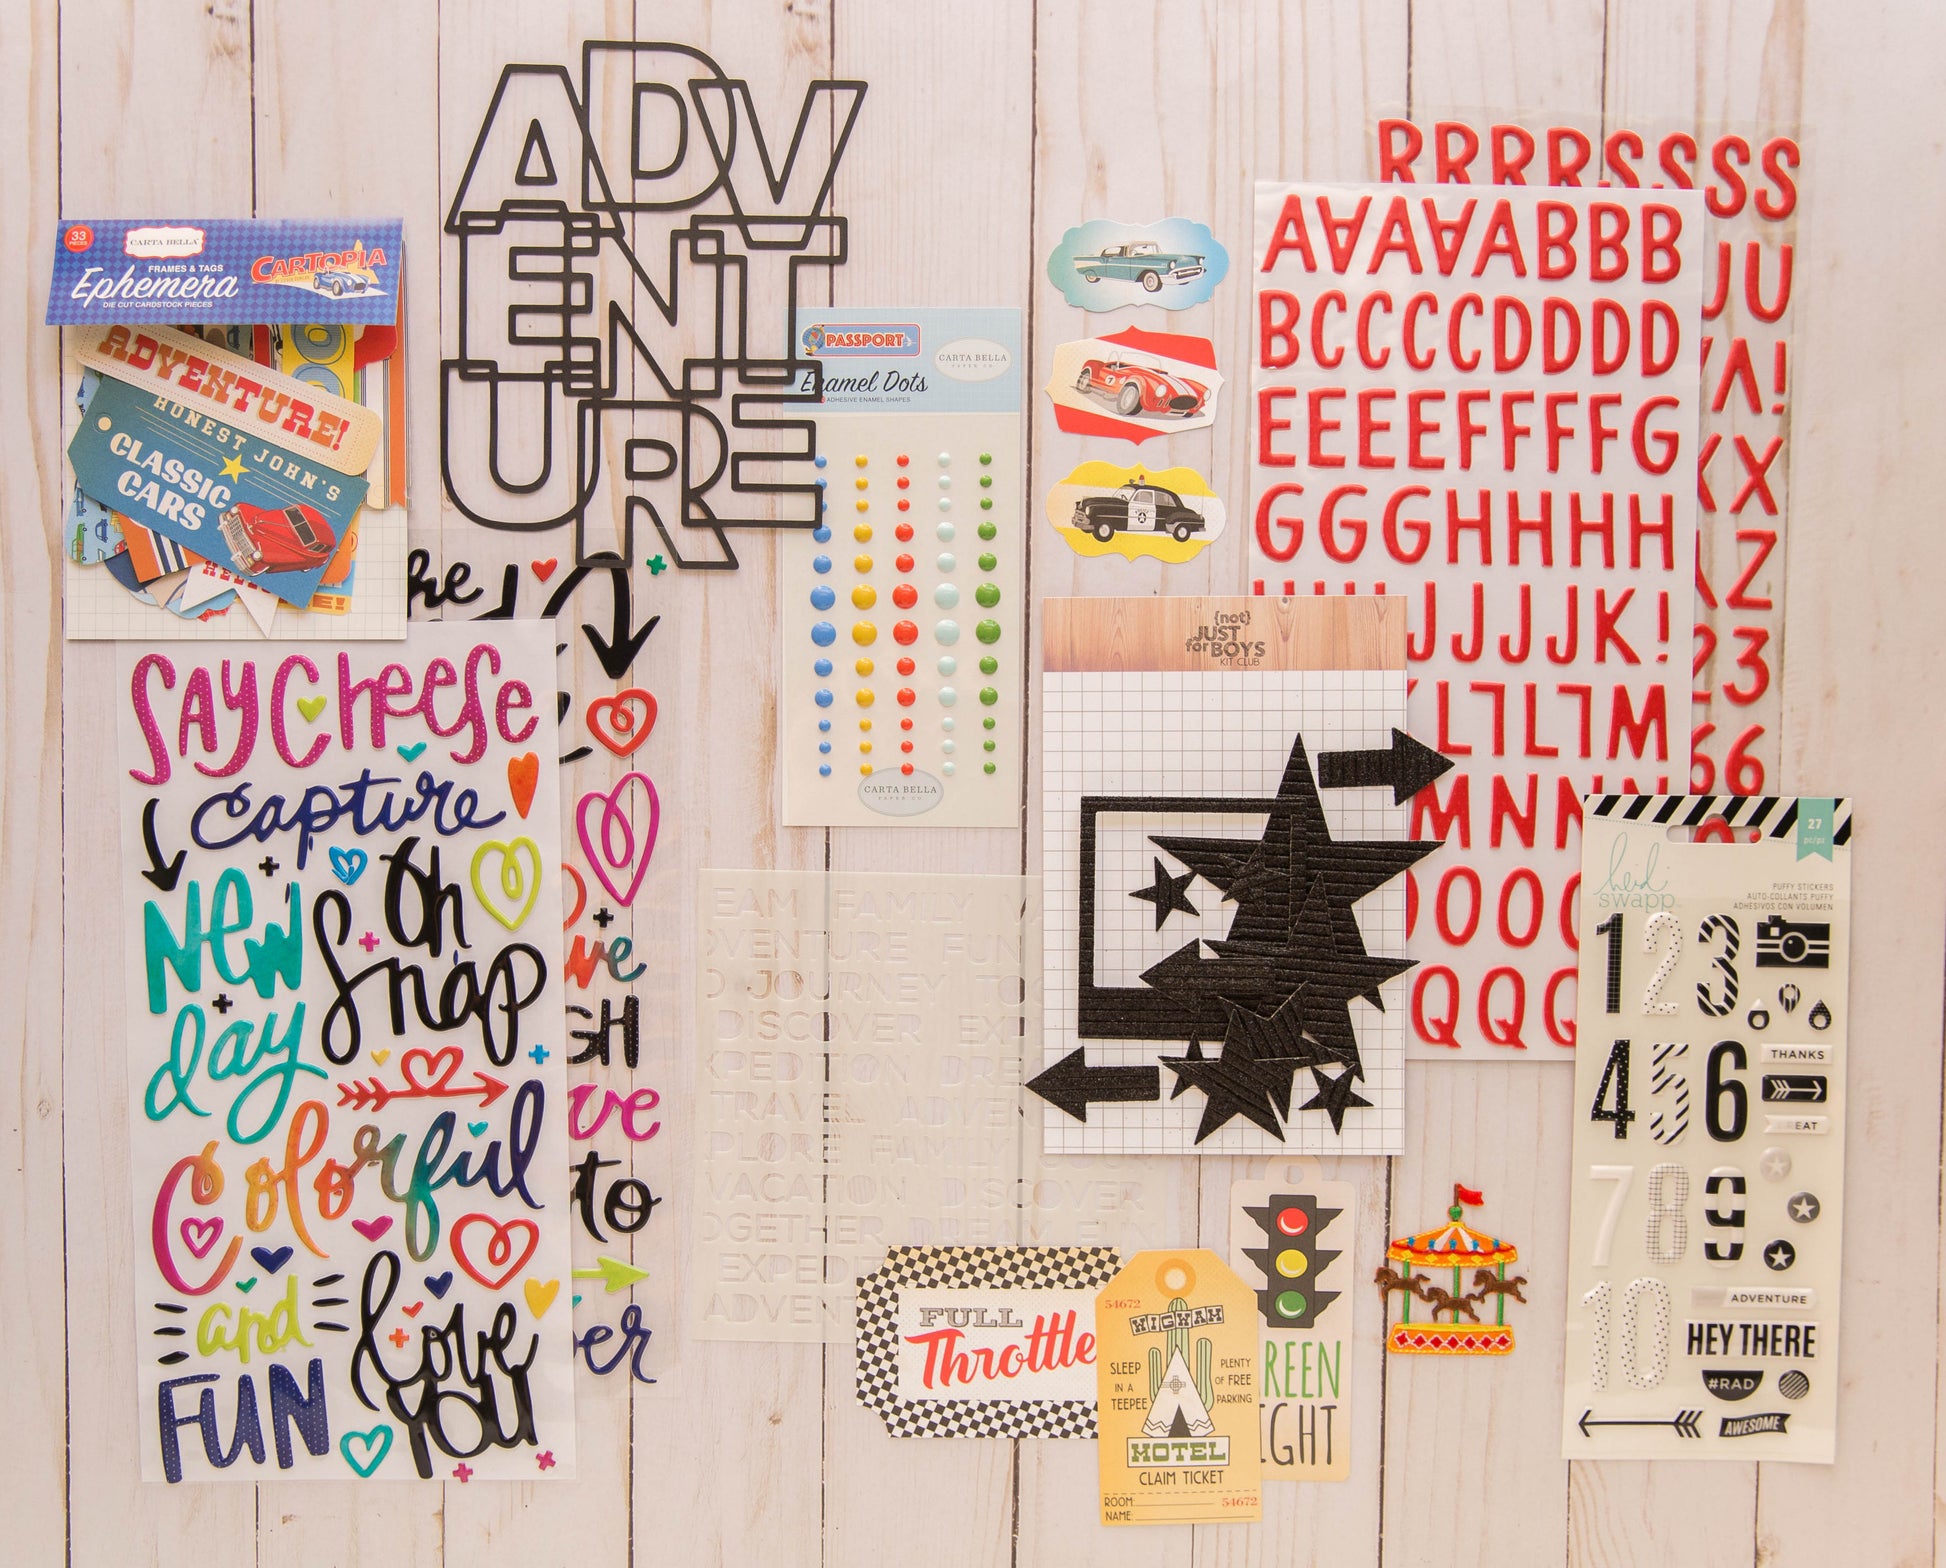 33
PIECES
CARTA BELLA
FRAMES & TAGS
Ephemera
DIE CUT CARDSTOCK PIECES
CARTOPIA
ADVENTURE!
HONEST JOHN'S
CLASSIC
CARS
ADV
ENT
URE
PASSPORT
CARTA BELLA
PAPER CO.
Enamel Dots
ADHESIVE ENAMEL SHAPES
CARTA BELLA
PAPER CO.
7
RRRRSSSSS
AAAAABBB
BCCCCDDDD
EEEEFFFFG
GGGHHHHH
JJJJK!
LLLLM
MNNN
OOO
QQQ
UU
!
X
Z
23
66
{not}
JUST
for BOYS
KIT CLUB
SAY Cheese
capture
New
day
Oh
Snap
Colorful
and
FUN
love
YOU
the
GH
to
FAMILY
FUN
JOURNEY
DISCOVER
TRAVEL
FAMILY
VACATION DISCOVER
DREAM FUN
FULL
Throttle
54672
WIGWAM
SLEEP
IN A
TEEPEE
PLENTY
OF FREE
PARKING
MOTEL
CLAIM TICKET
ROOM: 54672
NAME:
REEN
IGHT
27
pc/pz
heidi
swapp
PUFFY STICKERS
AUTO-COLLANTS PUFFY
ADHESIVOS CON VOLUMEN
1 2 3
4 5 6
THANKS
7 8 9
10
ADVENTURE
HEY THERE
#RAD
AWESOME